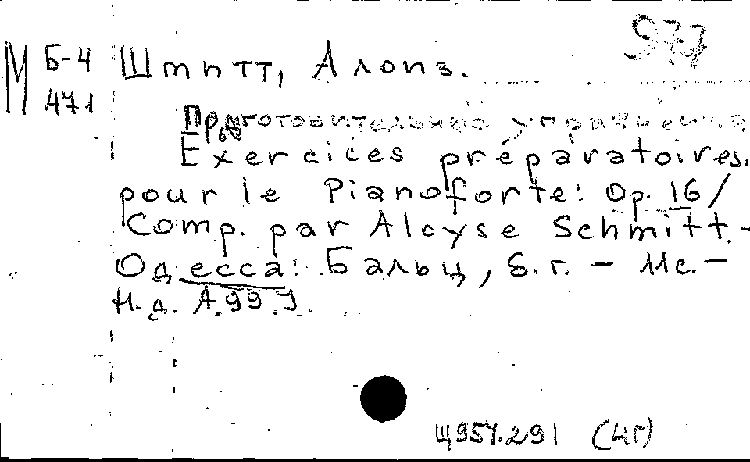 М Б-4
471
977
Шмитт, Алоиз.
Приготовительные упражнения
Exercices préparatoires
pour le Pianoforte: Op. 16/
Comp. par Aloyse Schmitt. -
Одесса: Бальц, б.г. - 11с. -
Н.д. А.99.
Щ957.291 (4г)